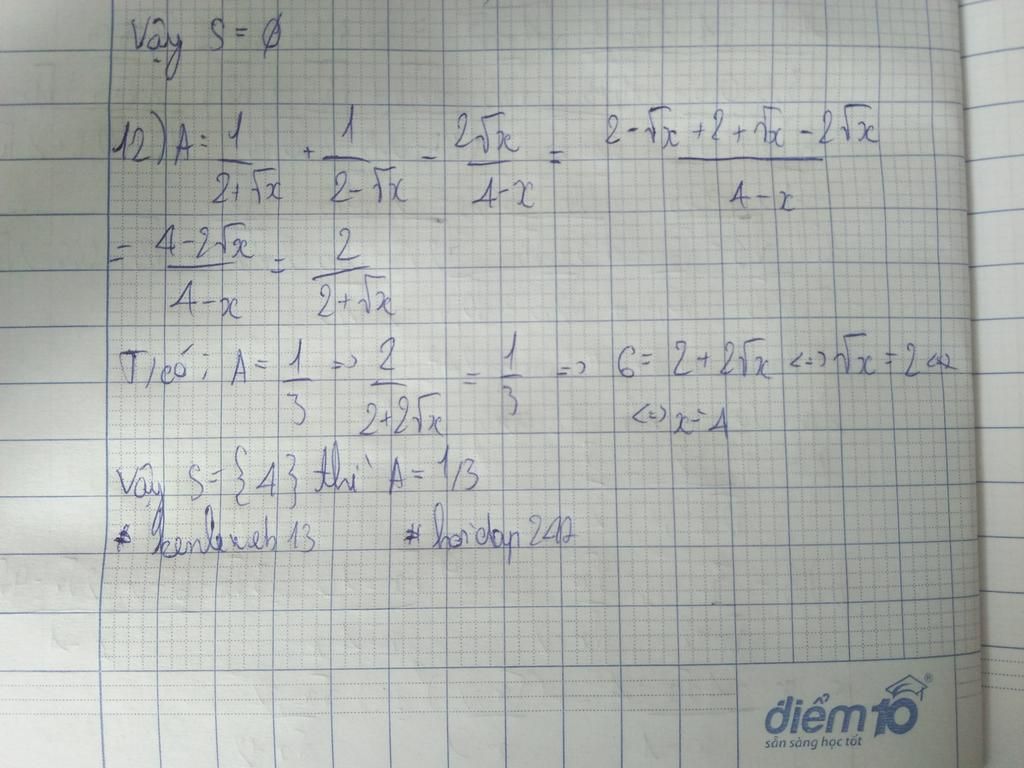 Vậy S = ∅
12) A = 1/(2+√x) + 1/(2-√x) - 2√x/(4-x) = (2-√x+2+√x-2√x)/(4-x)
= (4-2√x)/(4-x) = 2/(2+√x)
T/có: A = 1/3 => 2/(2+2√x) = 1/3 => 6 = 2+2√x <=> √x = 2 <=>
<=> x = 4
Vậy S = {4} thì A = 1/3
* hoidap 247
điểm10®
sẵn sàng học tốt